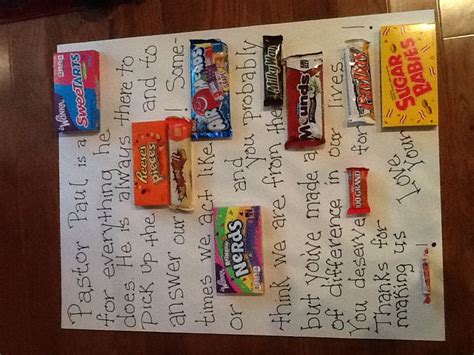 Pastor Paul is a Wonka SweeTARTS
for everything he
does. He is always there to
Pick up the Reese's Pieces and to
answer our ! Some-
times we act like AirHeads
or Wonka Nerds and you probably
think we are from the
but you've made Mounds
of difference in our lives.
You deserve 100 Grand for !
Thanks for
making us !
Love,
Your
Sugar Babies